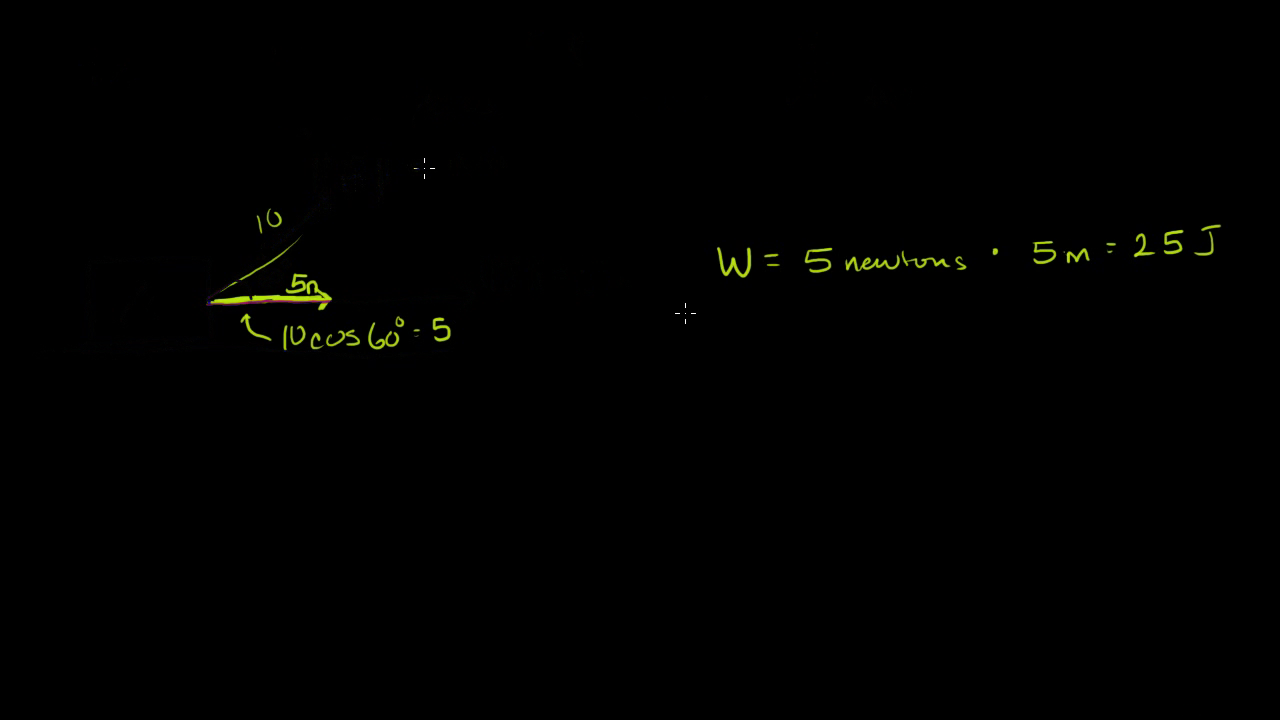 10
5n
10cos60° = 5
W = 5 newtons · 5m = 25 J